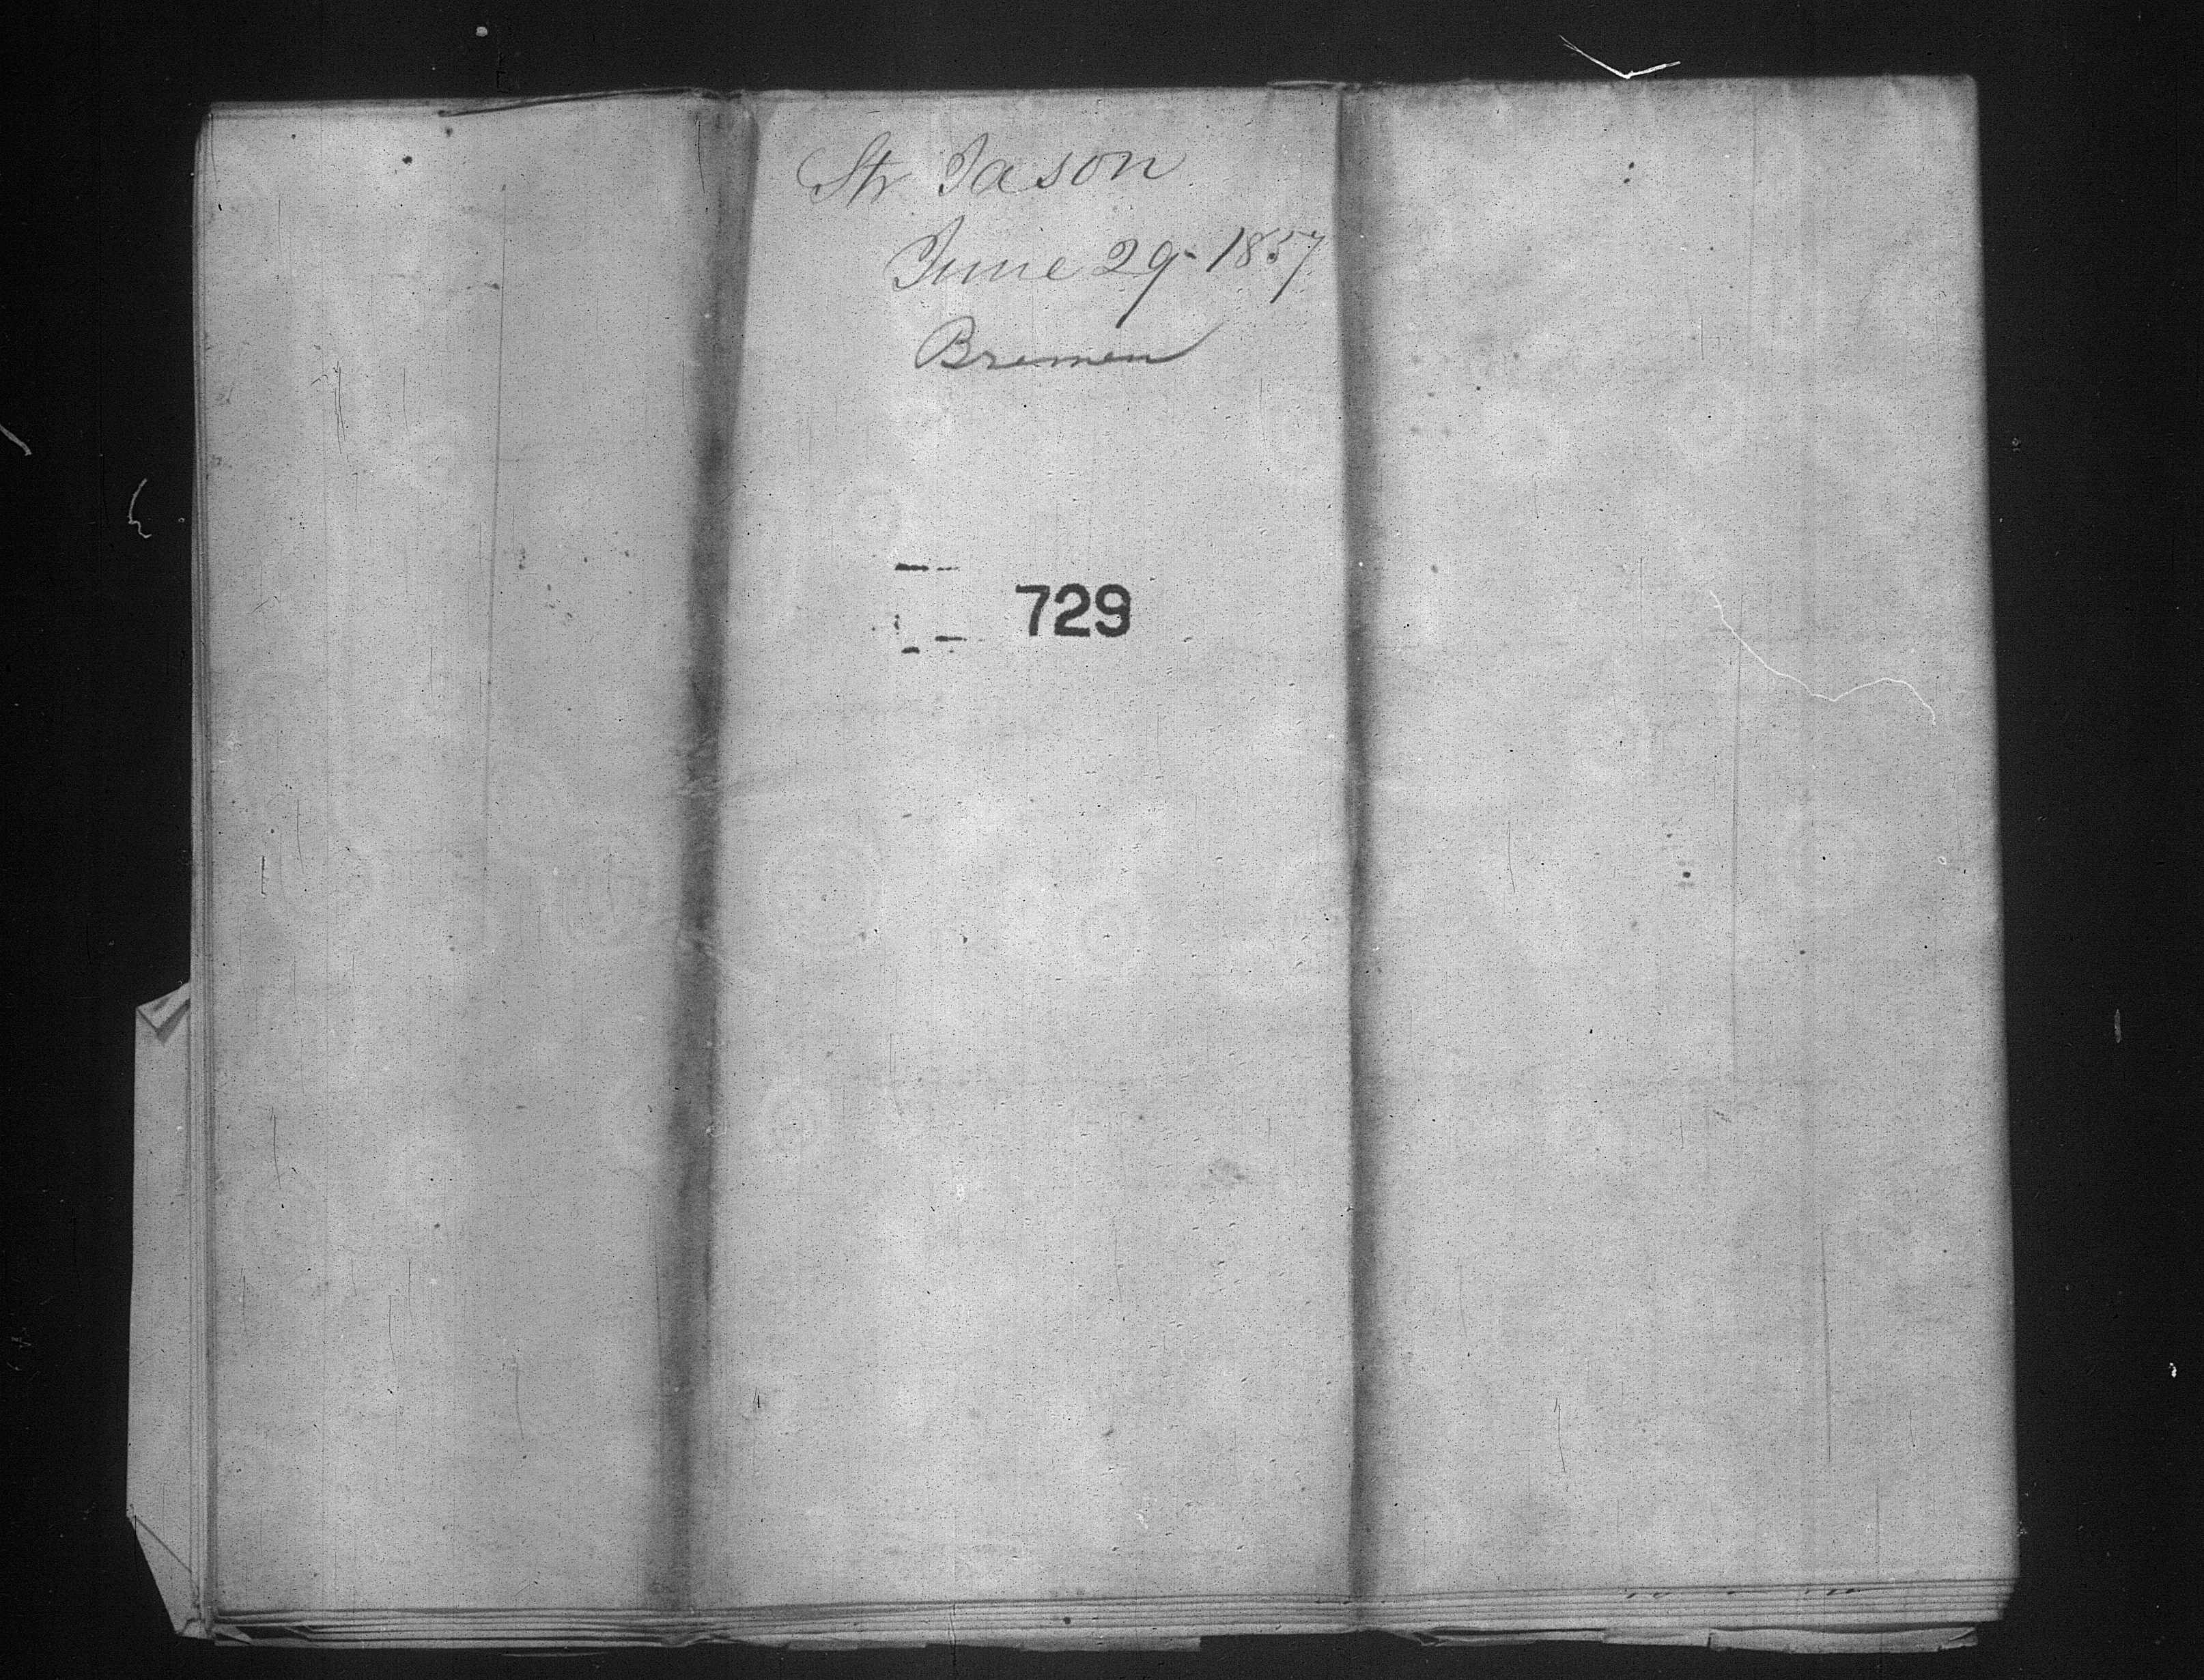 Str Jason
June 29-1857
Bremen
729